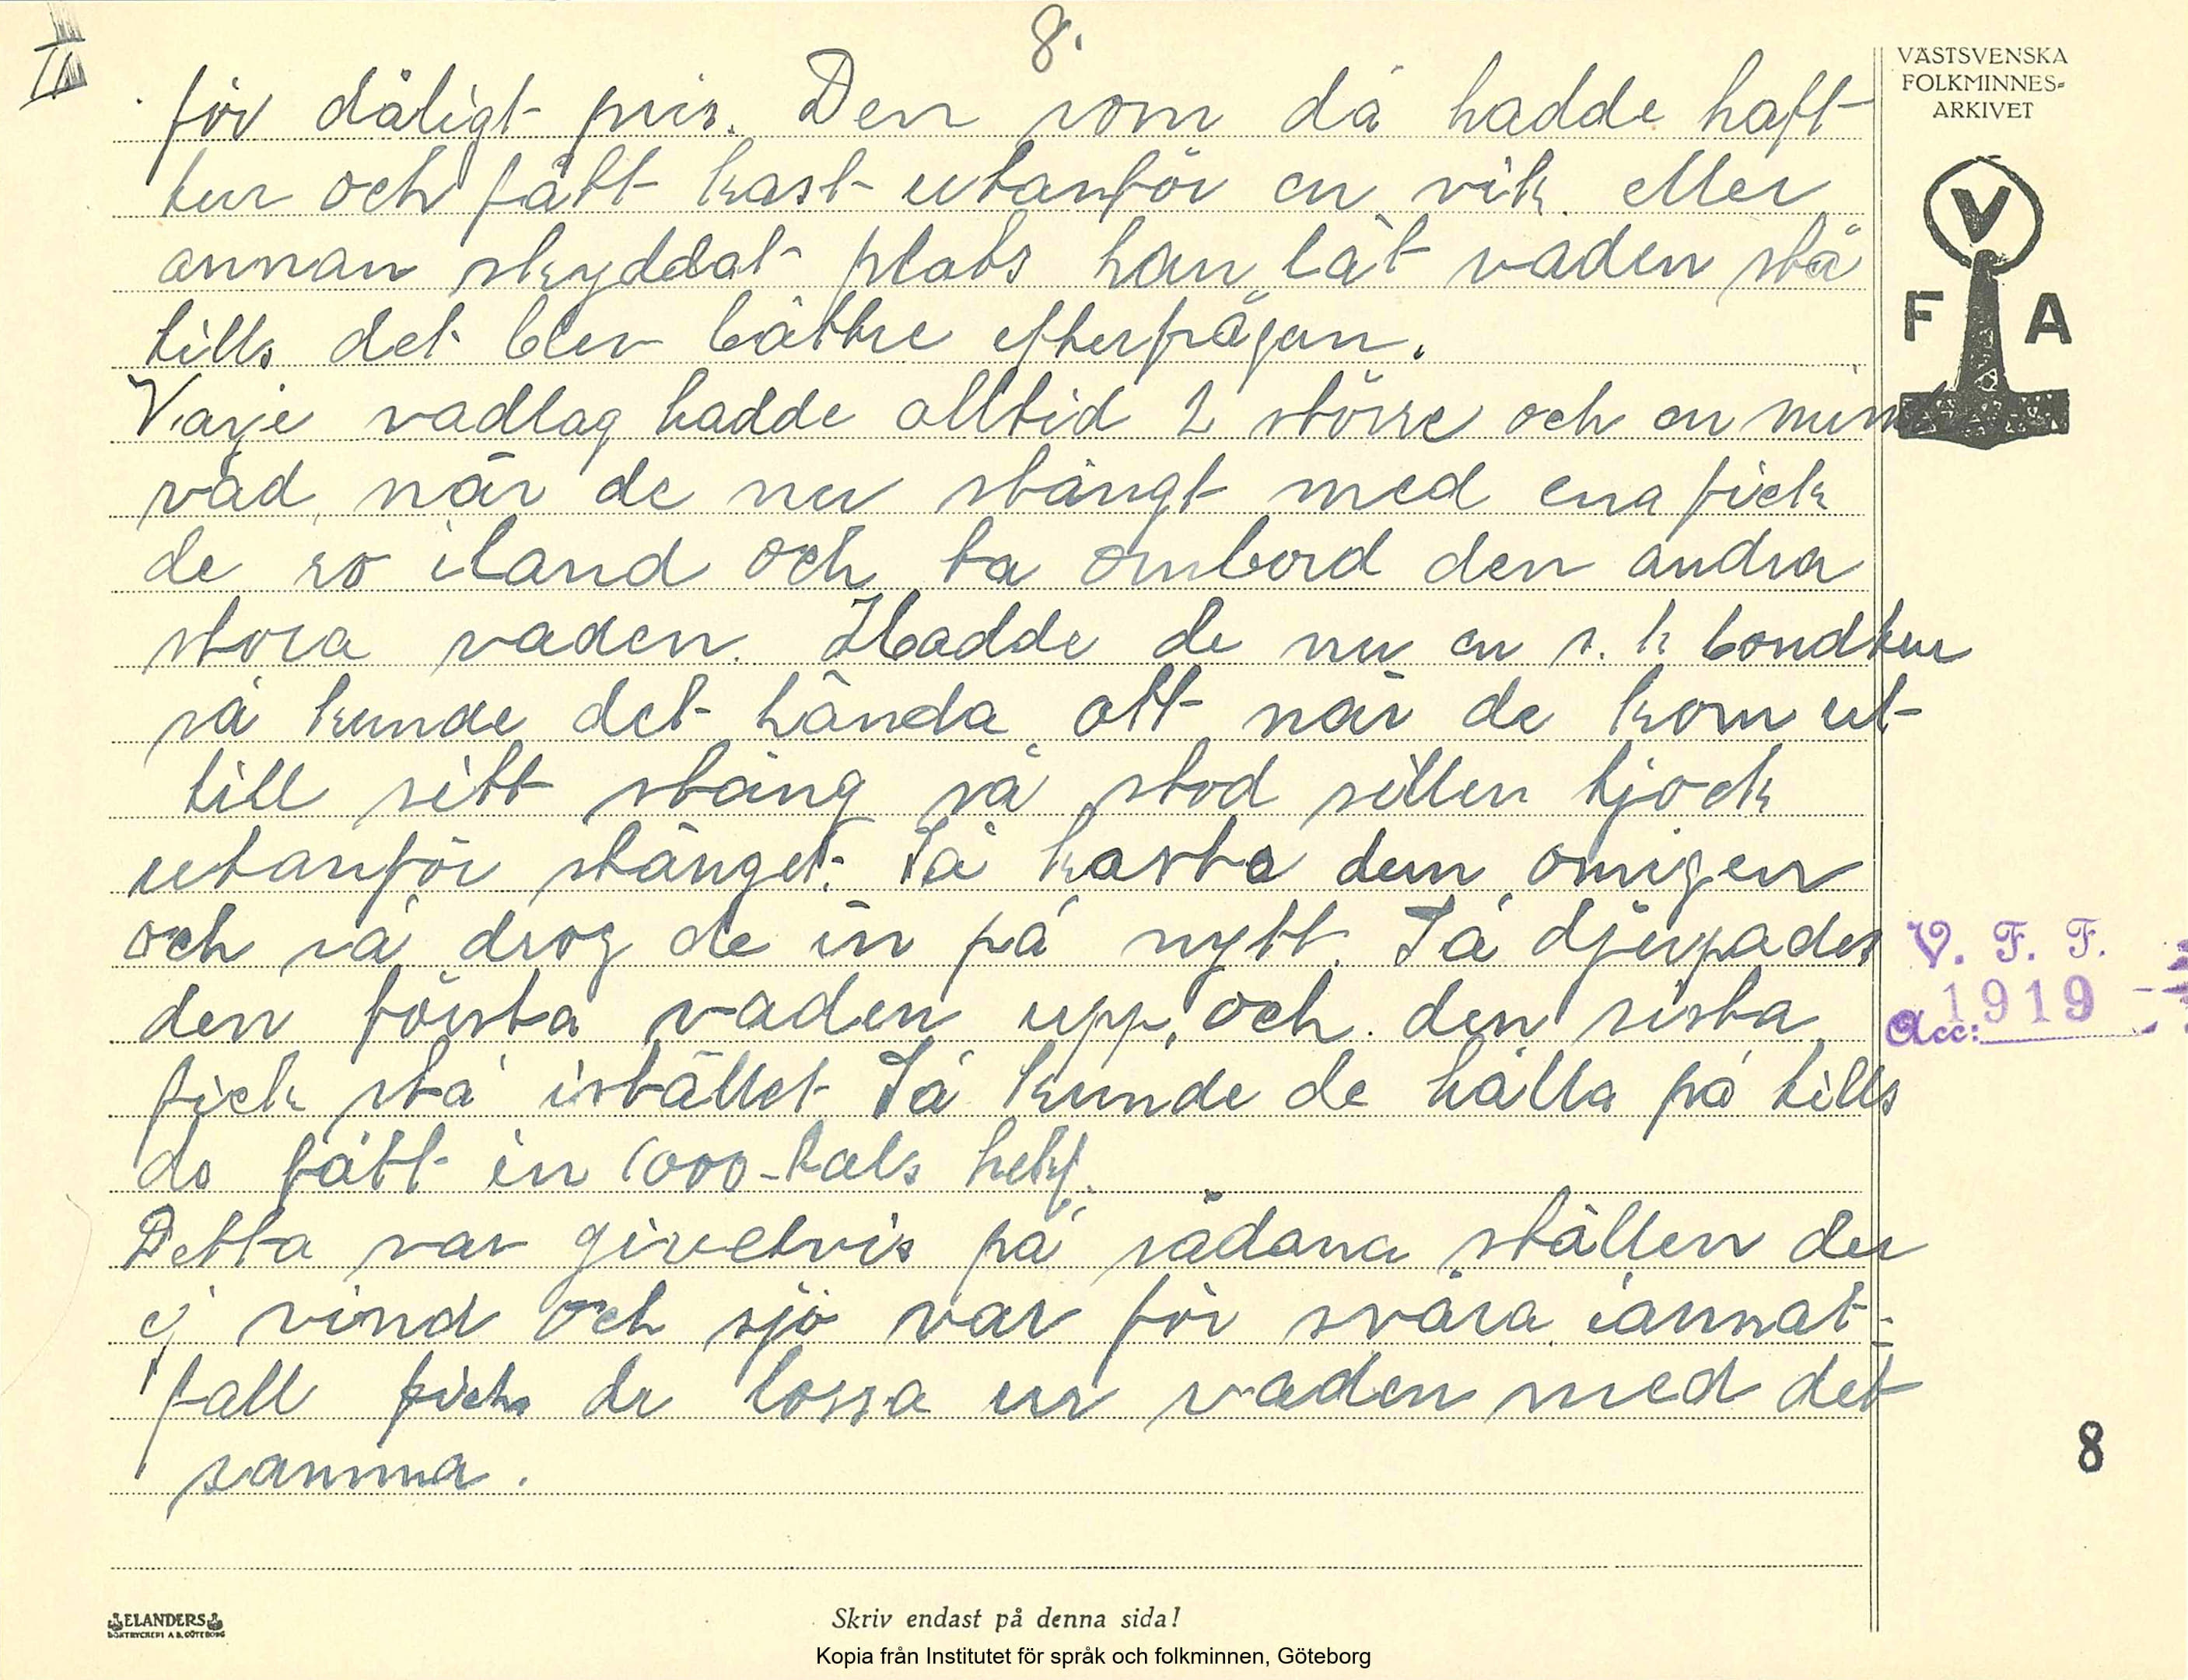 8.
för dåligt pris. Den som då hadde haft
tur och fått kast utanför en vik eller
annan skyddat plats han lät vaden stå
tills det blev bättre efterfrågan.
Varje vadlag hadde alltid 2 större och en min
vad, når de nu stängt med ena fick
de ro iland och ta ombord den andra
stora vaden. Hadde de nu en s. k bondtur
så kunde det hända att när de kom ut
till sitt stäng så stod sillen tjock
utanför stänget. Så kasta dem omigen
och så drog de in på nytt. Så djupades
den första vaden upp, och den sista
fick stå istället Så kunde de hålla på tills
de fått in 1000-tals hekt.
Detta var givetvis på sådana ställen der
ej vind och sjö var för svåra iannat-
fall fick de lossa ur vaden med det
samma.
VÄSTSVENSKA
FOLKMINNES-
ARKIVET
V
F A
V. F. F.
1919
Acc:
8
ELANDERS
BOKTRYCKERI A.B. GÖTEBORG
Skriv endast på denna sida!
Kopia från Institutet för språk och folkminnen, Göteborg